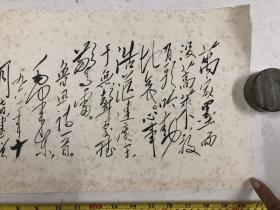 萬家墨面
没蒿莱敢
有歌吟動
地哀。心事
浩茫連廣宇
于無聲處聽
驚雷。
魯迅詩一首
毛澤東
一九六一年十
月七日書贈